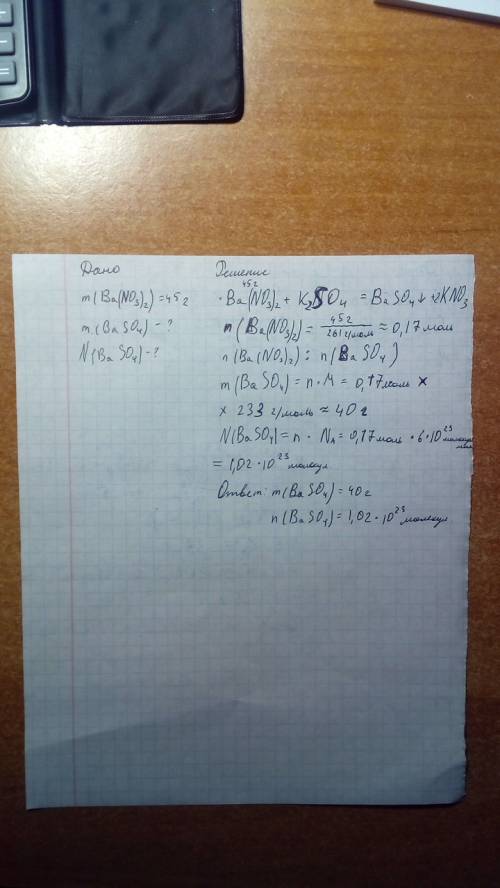 Дано
m(Ba(NO₃)₂)=45г
m(BaSO₄)-?
N(BaSO₄)-?
Решение
45г
Ba(NO₃)₂ + K₂SO₄ = BaSO₄↓+2KNO₃
n(Ba(NO₃)₂)= 45г/261г/моль ≈ 0,17моль
n(Ba(NO₃)₂) : n(BaSO₄)
m(BaSO₄)=n·M = 0,17моль ×
× 233 г/моль ≈ 40г
N(BaSO₄)=n · Nₐ= 0,17моль · 6·10²³ молекул/моль
= 1,02·10²³ молекул
Ответ: m(BaSO₄)=40г
n(BaSO₄)=1,02·10²³ молекул